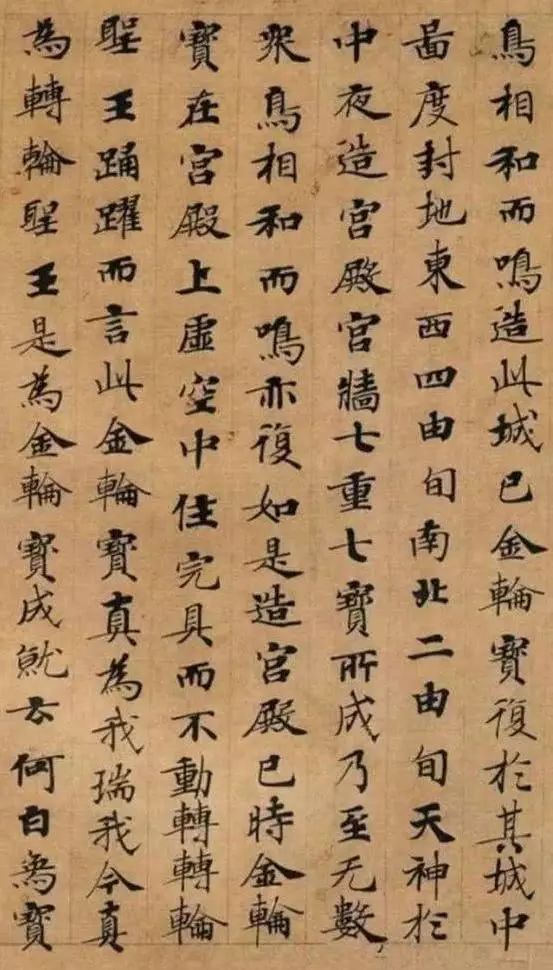 鳥相和而鳴造此城已金輪寶復於其城中
啚度封地東西四由旬南北二由旬天神於
中夜造宮殿宮牆七重七寶所成乃至无數
衆鳥相和而鳴亦復如是造宮殿已時金輪
寶在宮殿上虛空中住完具而不動轉轉輪
聖王踊躍而言此金輪寶真為我瑞我今真
為轉輪聖王是為金輪寶成就云何白象寶